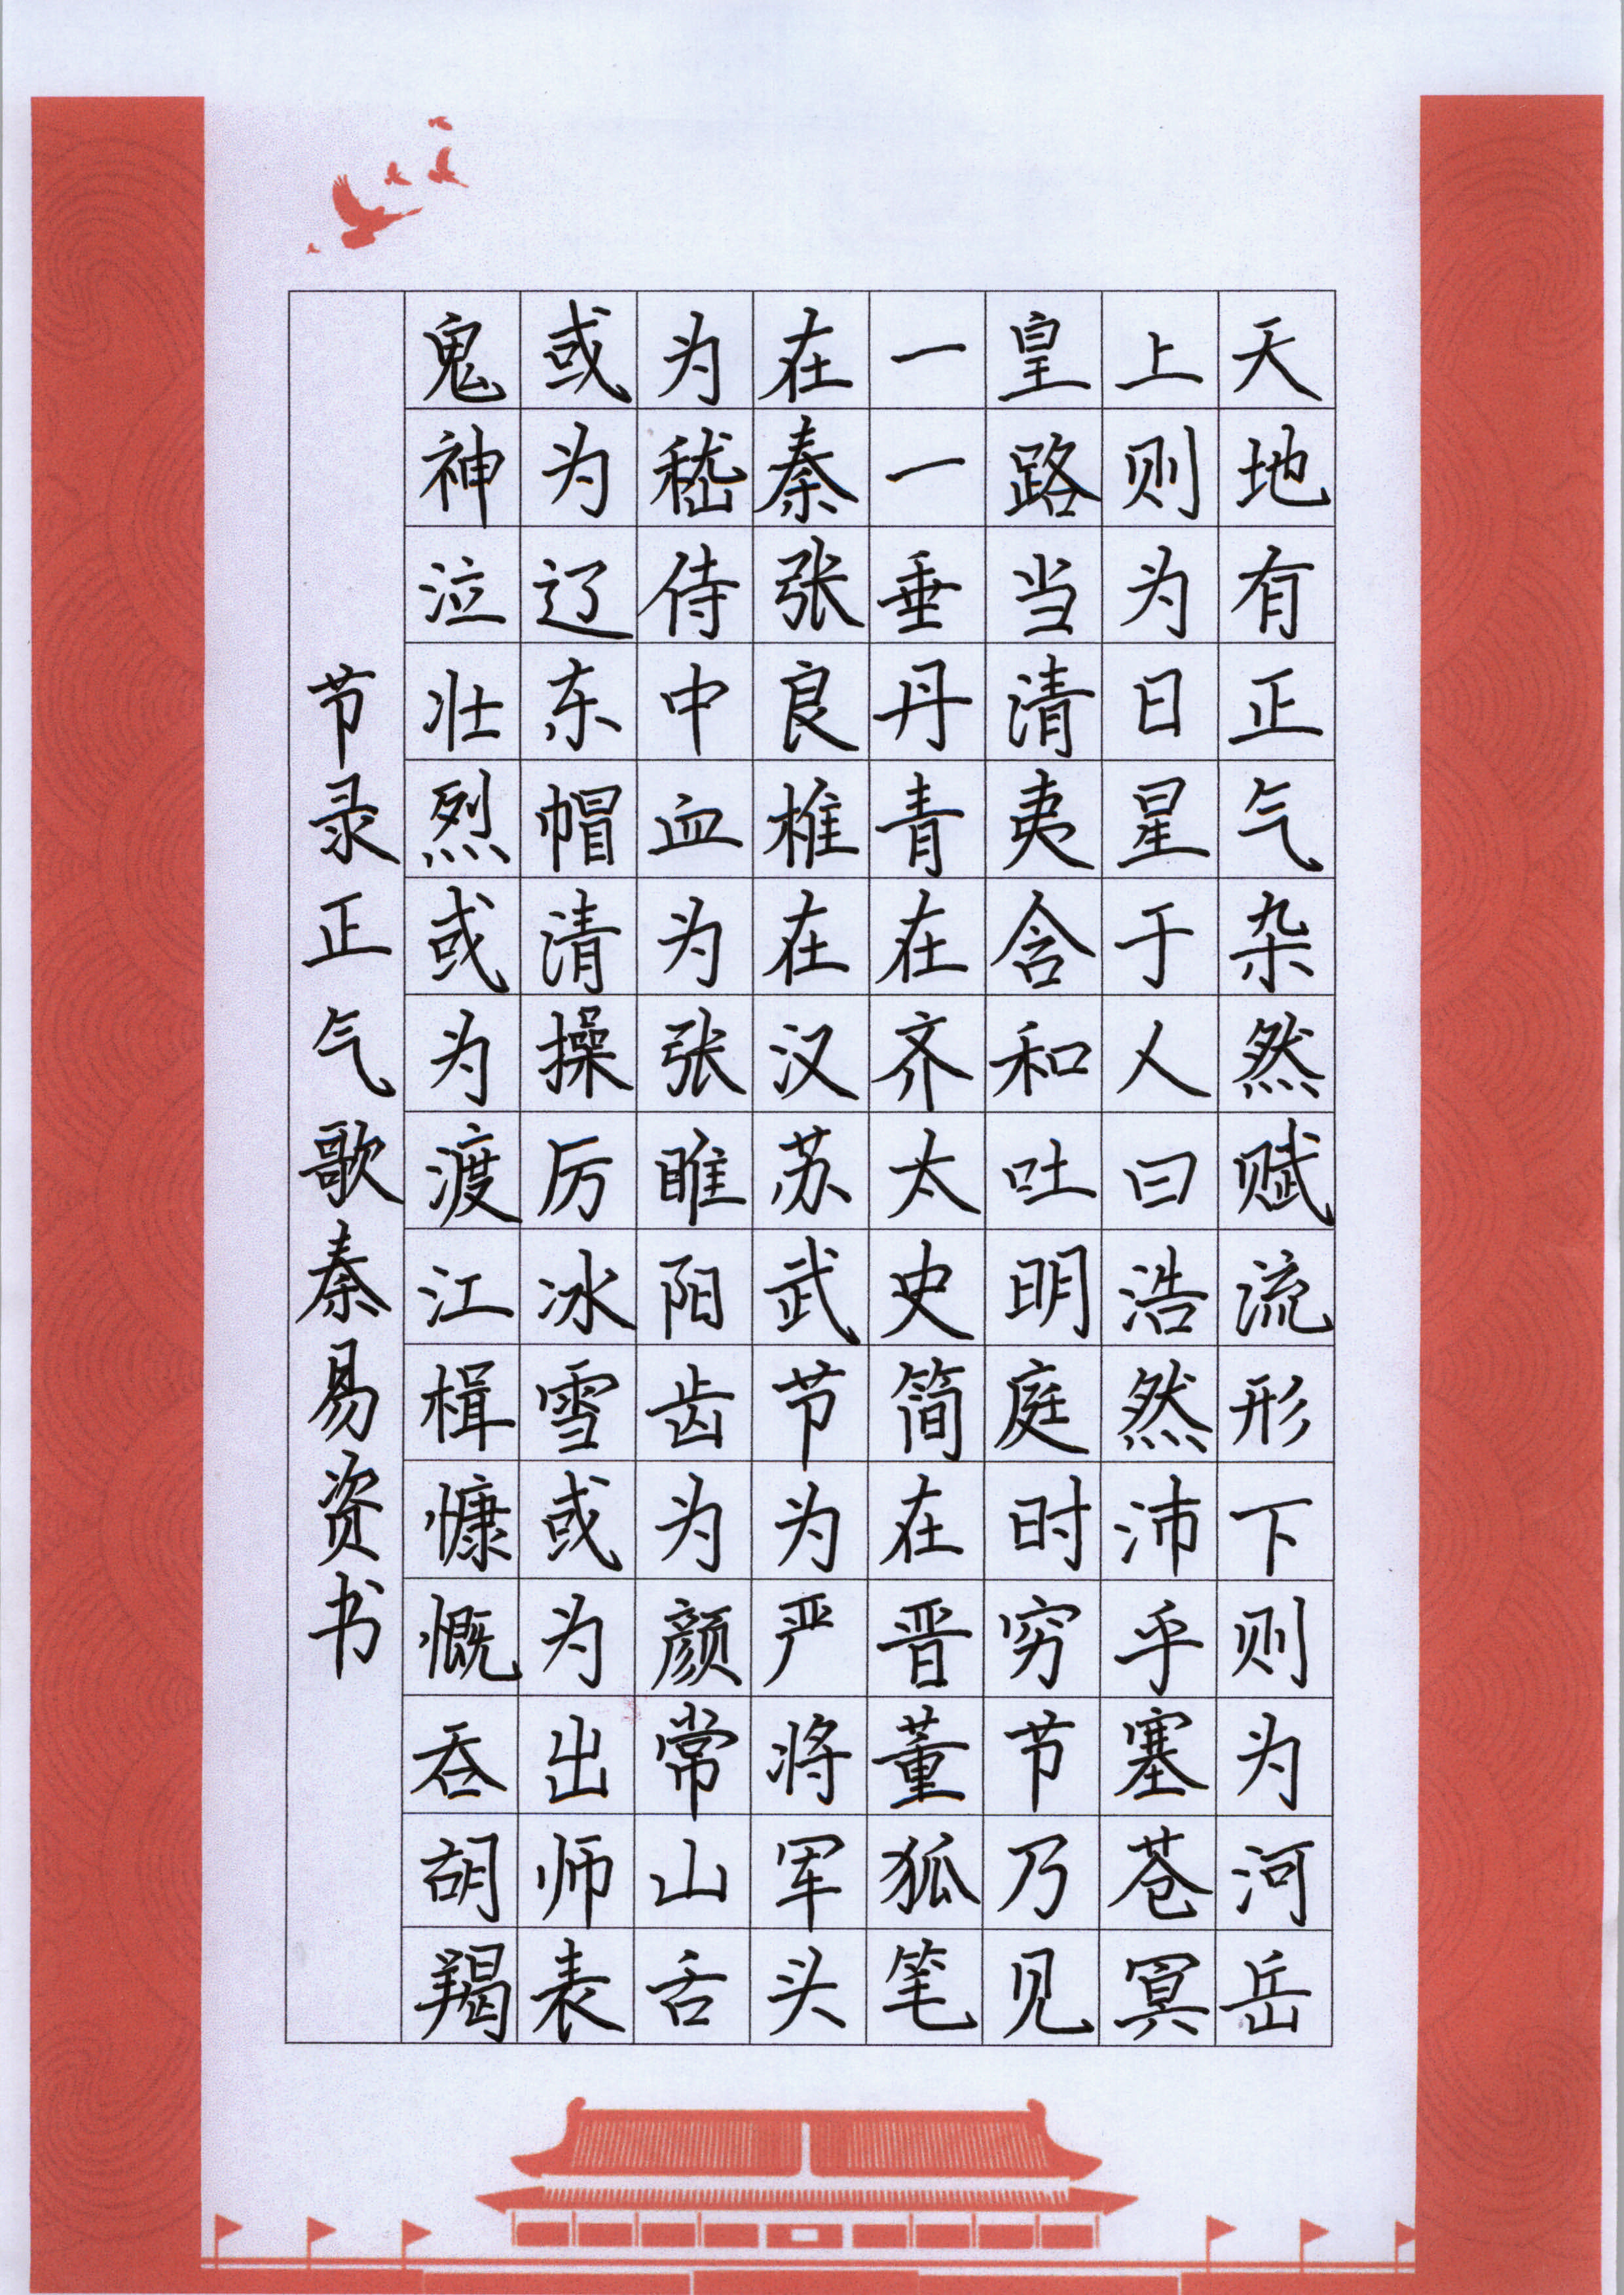 天地有正气杂然赋流形下则为河岳
上则为日星于人曰浩然沛乎塞苍冥
皇路当清夷含和吐明庭时穷节乃见
一一垂丹青在齐太史简在晋董狐笔
在秦张良椎在汉苏武节为严将军头
为嵇侍中血为张睢阳齿为颜常山舌
或为辽东帽清操厉冰雪或为出师表
鬼神泣壮烈或为渡江楫慷慨吞胡羯
节录正气歌秦易资书